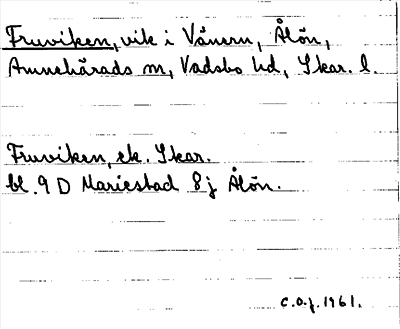 Fruviken, vik i Vänern, Ålön,
Amnehärads sn, Vadsbo hd, Skar. l.
Fruviken, ek. Skar.
bl. 9 D Mariestad 8j Ålön.
C.O.J. 1961.